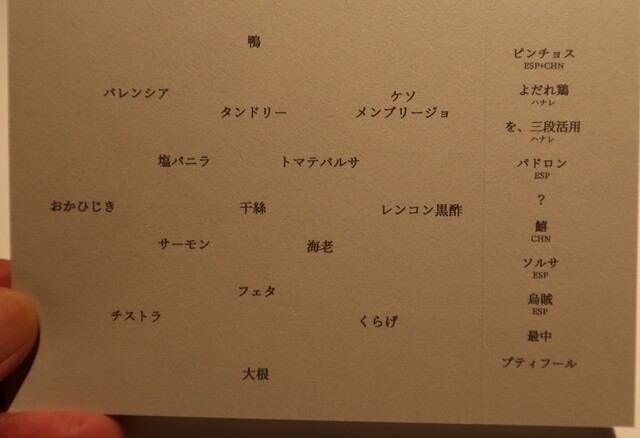 鴨
バレンシア
タンドリー
ケソ
メンブリージョ
塩バニラ
トマテバルサ
おかひじき
干絲
レンコン黒酢
サーモン
海老
フェタ
チストラ
くらげ
大根
ピンチョス
ESP+CHN
よだれ鶏
ハナレ
を、三段活用
ハナレ
パドロン
ESP
？
鱚
CHN
ソルサ
ESP
烏賊
ESP
最中
プティフール